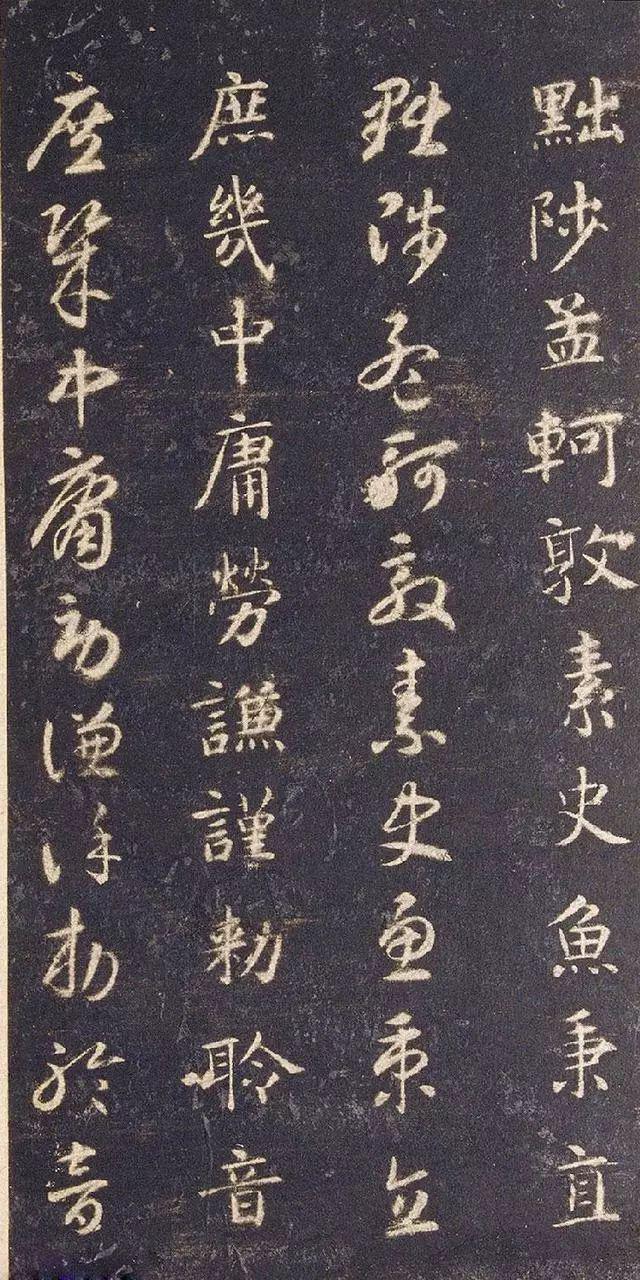 黜陟孟軻敦素史魚秉直
黜陟孟軻敦素史魚秉直
庶幾中庸勞謙謹勅聆音
庶幾中庸勞謙謹勅聆音